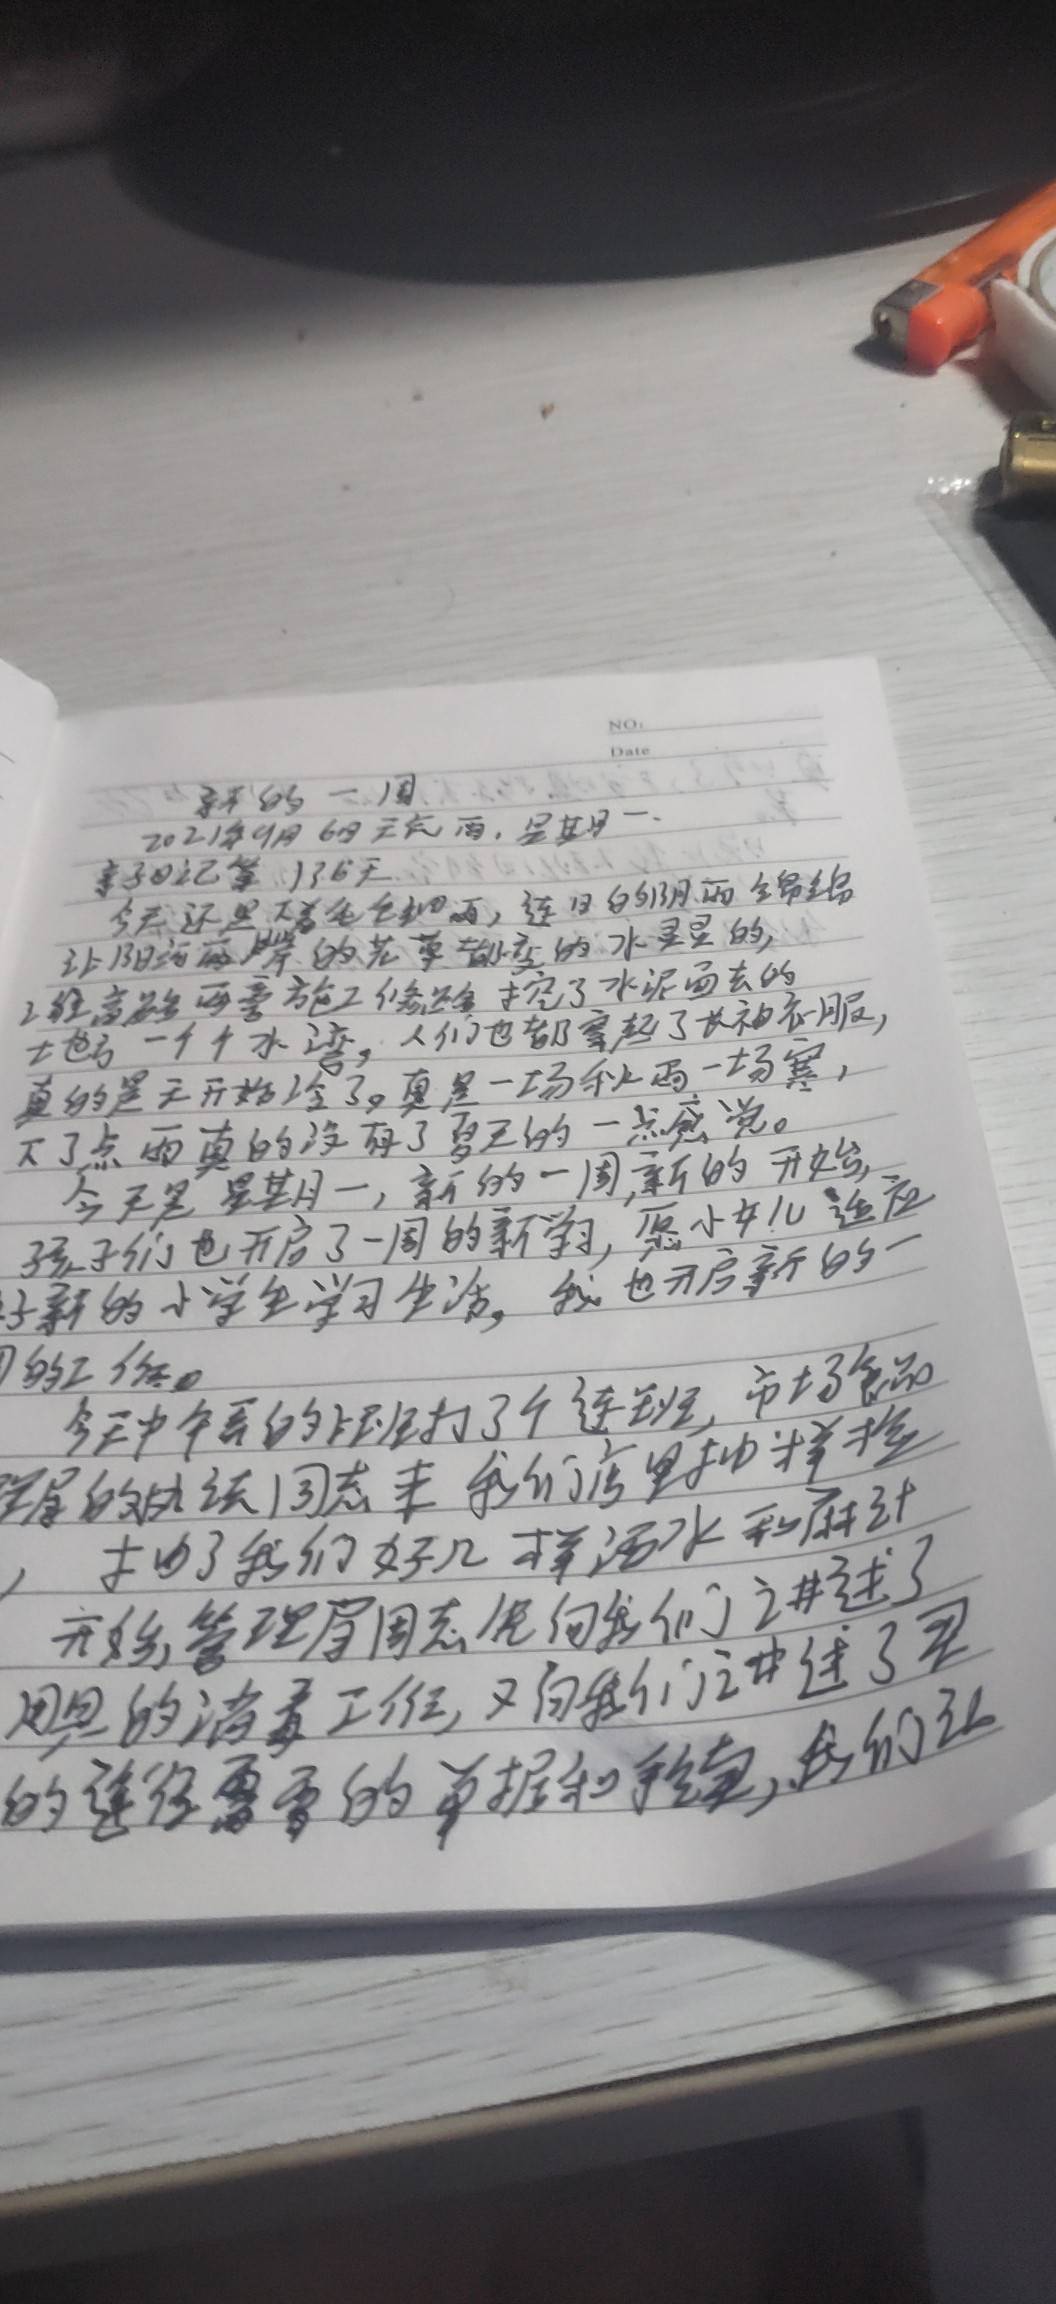 NO:
Date
新的一周
2021年9月6日天气雨,星期一.
亲子日记第136天
今天还是下着毛毛细雨,连日的阴雨绵绵
让阳河两岸的花草都变的水灵灵的,
路两旁施工修路挖了水泥面去的
土也与一个个水湾。人们也都穿起了长袖衣服,
真的是天开始冷了。真是一场秋雨一场寒,
下了点雨真的没有了夏天的一点感觉。
今天是星期一,新的一周,新的开始,
孩子们也开启了一周的新学习,愿小女儿适应
好新的小学生学习生活。我也开启新的一
周的工作。
今天中午我的上班打了个连班,市场食品
管理局的执法同志来我们店里抽样检
,抽了我们好几样酒水和麻汁
开始,管理局同志先向我们讲述了
用具的消毒工作,又向我们讲述了
的途径需要的单据和,我们让